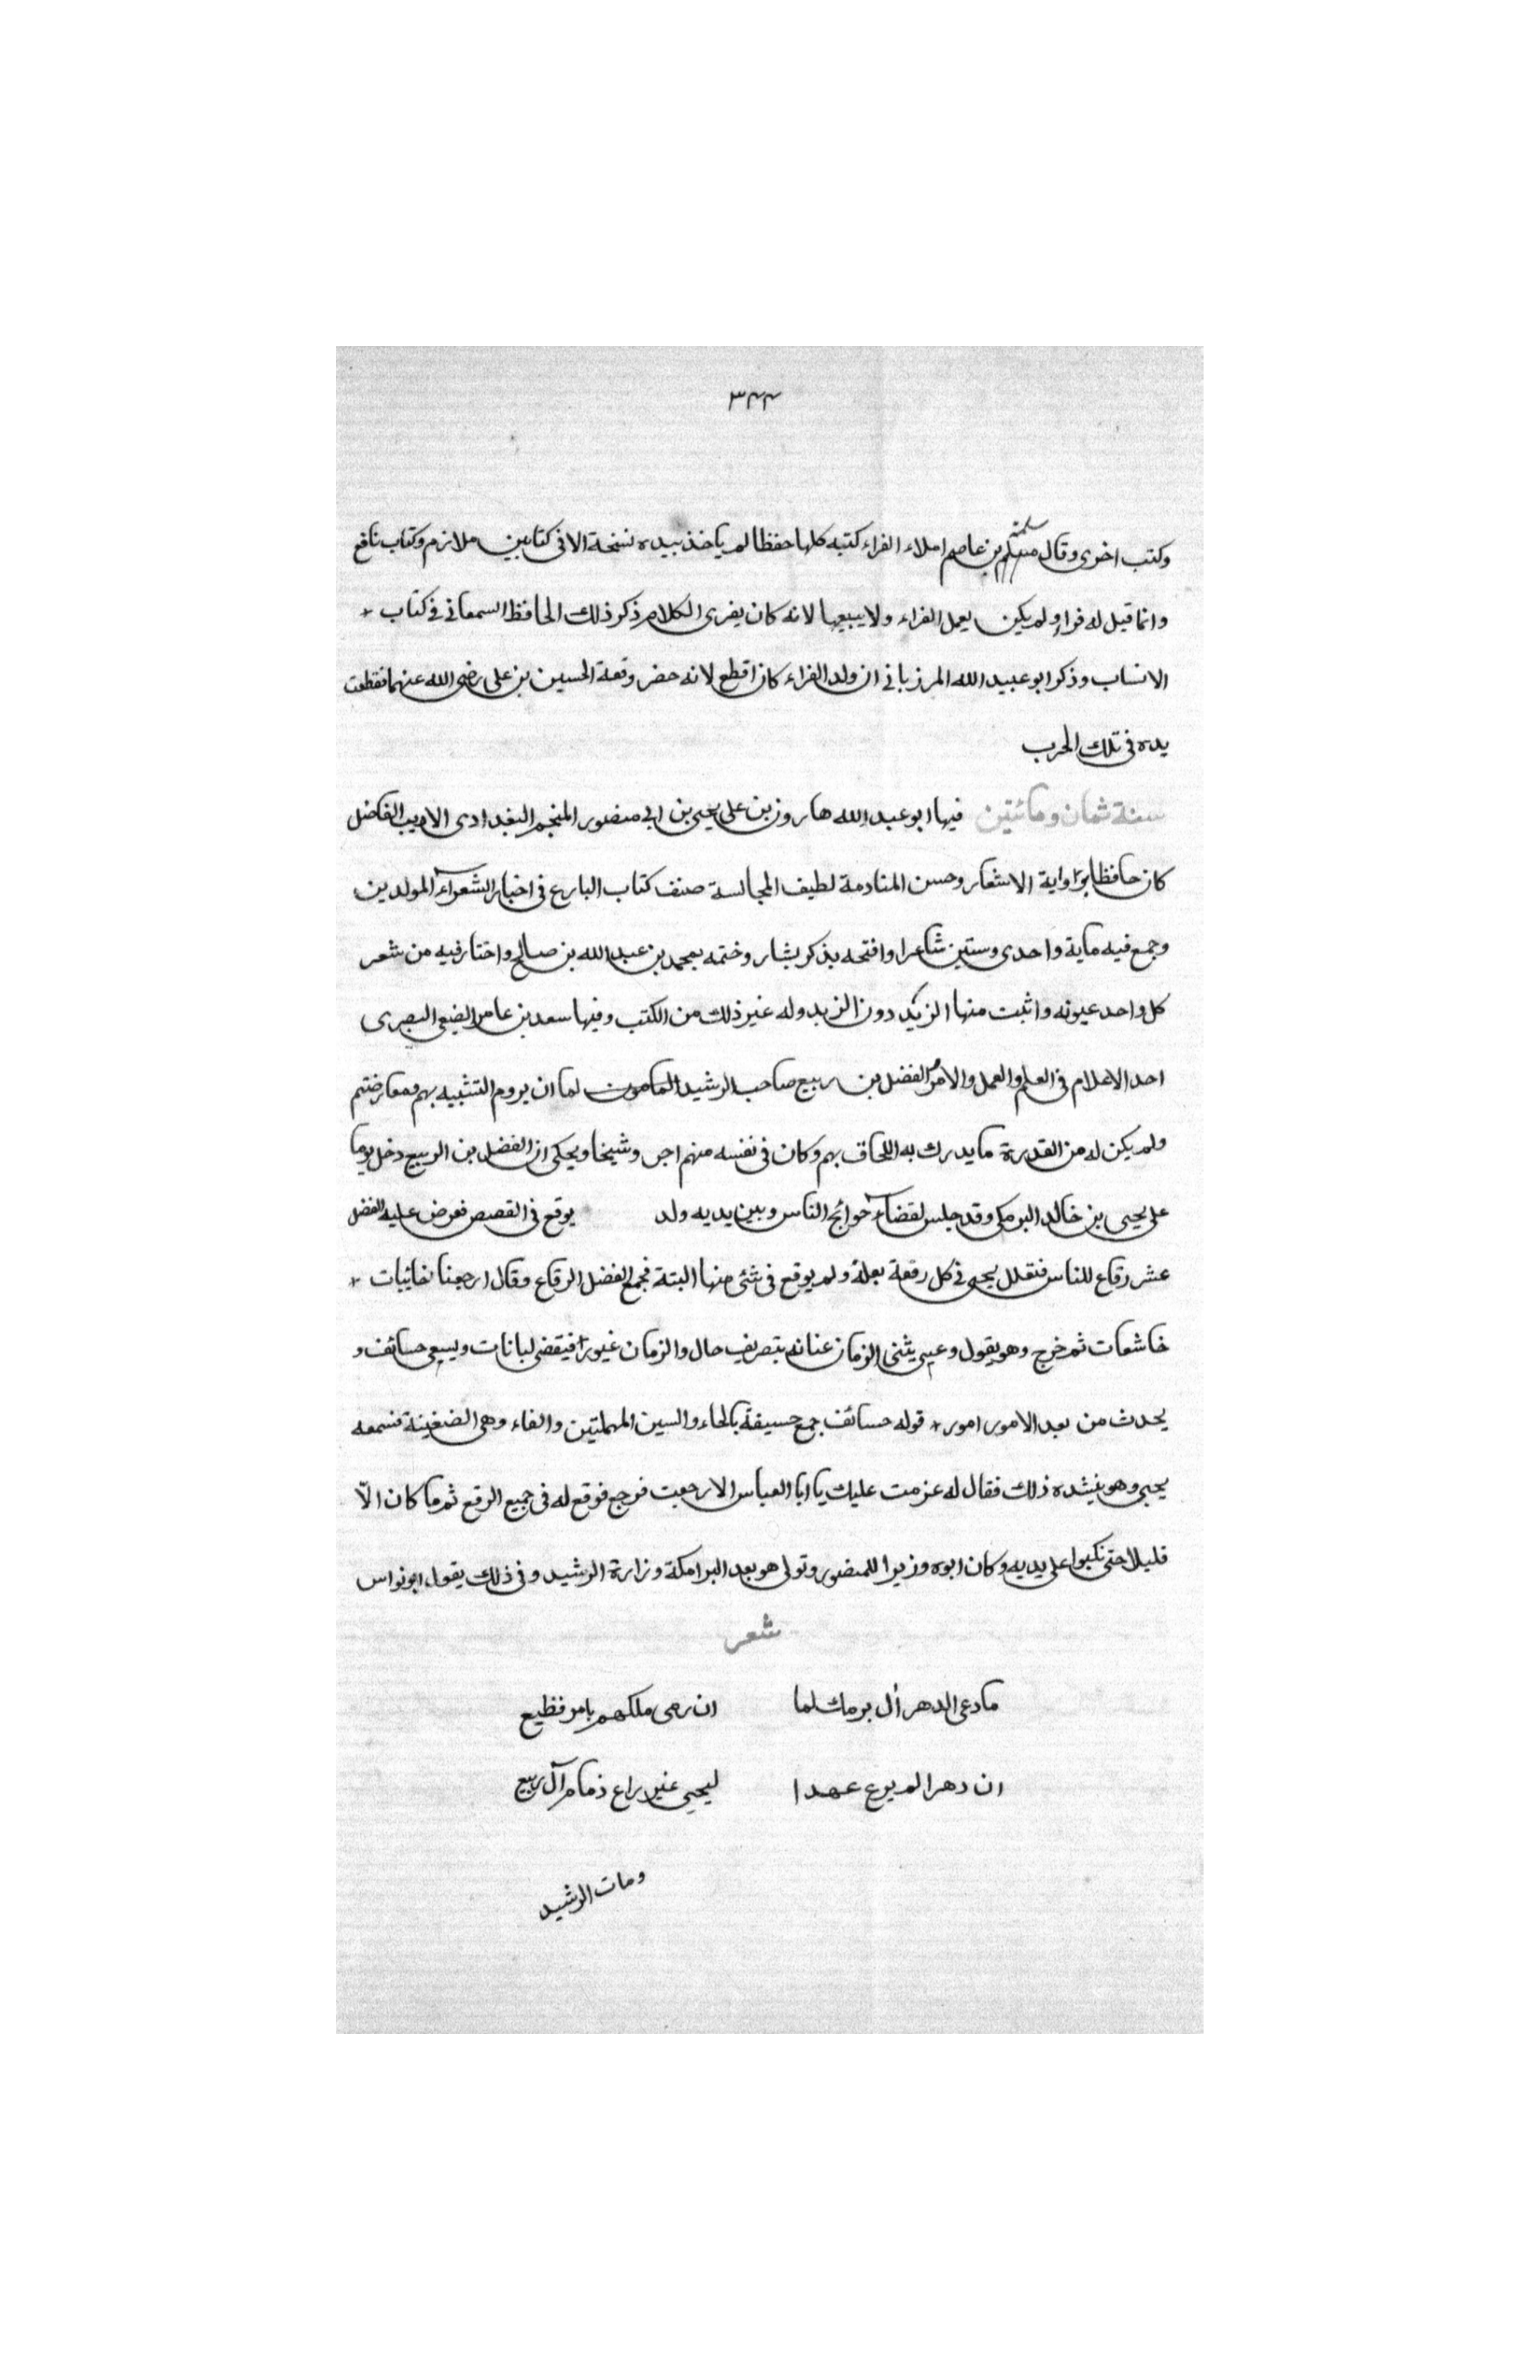 ٣٤٤
وكتب اخرى وقال سلمة بن عاصم املاء الفراء كتبه كلها حفظا لم ياخذ بيده نسخة الا فى كتابين ملازم وكتاب نافع
وانما قيل له فراء ولم يكن يعمل الفراء ولا يبيعها لانه كان يفرى الكلام ذكر ذلك الحافظ السمعانى فى كتاب
الانساب وذكر ابو عبيد الله المرزبانى ان ولد الفراء كان اقطع لانه حضر وقعة الحسين بن على رضى الله عنهما فقطعت
يده فى تلك الحرب
سنة ثمان ومائتين فيها ابو عبد الله هارون بن على يحيى بن ابى منصور المنجم البغدادى الاديب الفاضل
كان حافظا راوية الاشعار وحسن المنادمة لطيف المجالسة صنف كتاب البارع فى اخبار الشعراء المولدين
وجمع فيه ماية واحدى وستين شاعرا وافتحه بذكر بشار وختمه بمحمد بن عبد الله بن صالح واختار فيه من شعر
كل واحد عيونه واثبت منها الزبد دون الزبد وله غير ذلك من الكتب وفيها سعد بن عامر الضبعى البصرى
احد الاعلام فى العلم والعمل والامر الفضل بن ربيع صاحب الرشيد المامون لما ان يروم التشبيه بهم ومعارضتم
ولم يكن له من القدرة ما يدرك به اللحاق بهم وكان فى نفسه منهم اجن وشيخا ويحكى ان الفضل بن الربيع دخل يوما
على يحيى بن خالد البرمكى وقد جلس لقضاء حوائج الناس وبين يديه ولد يوقع فى القصص فعرض عليه الفضل
عشر رقاع للناس فتقلل يحيى فى كل رقعة بعلة ولم يوقع فى شئ منها البتة فجمع الفضل الرقاع وقال ارجعنا خائبات
خاشعات ثم خرج وهو يقول وعسى يثنى الزمان عنانه بتصريف حال والزمان غيور فيقضى لبانات ويسعى حسائف و
يحدث من بعد الامور امور قوله حسائف جمع حسيفة بالحاء والسين المهملتين والفاء وهى الضغينة فسمعه
يحيى وهو ينشده ذلك فقال له عزمت عليك يا ابا العباس الا رجعت فرجع فوقع له فى جميع الرقع ثم ما كان الّا
قليلا حتى نكبوا على يديه وكان ابوه وزيرا للمنصور وتولى هو بعد البرامكة وزارة الرشيد وفى ذلك يقول ابو نواس
شعر
ما دعى الدهر أل برمك لما ان رمى ملكهم بامر فظيع
ان دهرا لم يرع عهدا ليحيى غير راع ذمام آل ربيع
ومات الرشيد